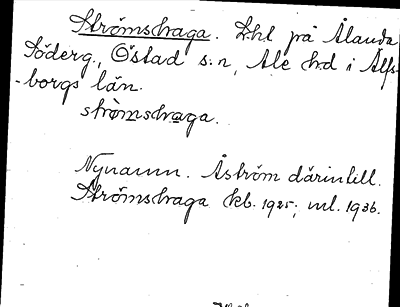 Strömshaga. Lht på Ålanda
Söderg., Östad s:n, Ale hd i Älfs-
-borgs län.
strömshaga.
Nynamn. Åström därintill.
Strömshaga kb. 1925; ml. 1936.